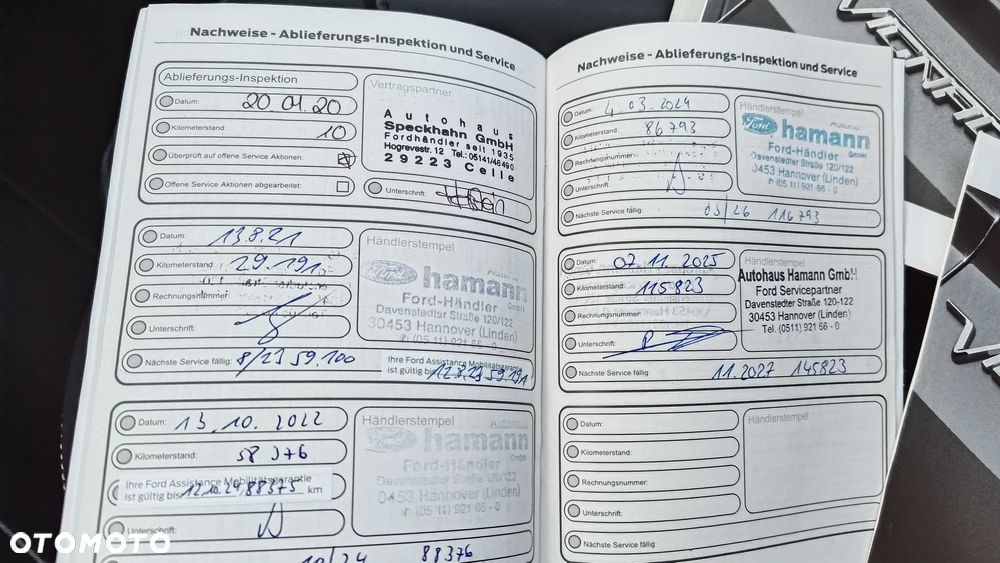 Nachweise - Ablieferungs-Inspektion und Service
Ablieferungs-Inspektion
Datum: 20 01.20
Kilometerstand: 10
Überprüft auf offene Service Aktionen:
Offene Service Aktionen abgearbeitet:
Vertragspartner
Autohaus
Speckhahn GmbH
Fordhändler seit 1935
Hogrevestr. 12 Tel.: 05141/48490
29223 Celle
Unterschrift:
Datum: 13.8.21
Kilometerstand: 29.191
Rechnungsnummer:
Unterschrift:
Nächste Service fällig: 8/23 59.100
Händlerstempel
Ford hamann
Ford-Händler GmbH
Davenstedter Straße 120/122
30453 Hannover (Linden)
(05 11) 921 66 - 0
Ihre Ford Assistance Mobilitätsgarantie
ist gültig bis 12.8.23 59.191
Datum: 13.10.2022
Kilometerstand: 58 376
Ihre Ford Assistance Mobilitätsgarantie
ist gültig bis 12.10.24/88375 km
Unterschrift:
10/24 88376
Händlerstempel
Autohaus
hamann
GmbH
Ford-Händler
Davenstedter Straße 120/122
0453 Hannover (Linden)
(05 11) 921 66 - 0
Nachweise - Ablieferungs-Inspektion und Service
Datum: 4.03.2024
Kilometerstand: 86793
Rechnungsnummer:
Unterschrift:
Nächste Service fällig: 03/26 116793
Händlerstempel
Ford hamann
Ford-Händler GmbH
Davenstedter Straße 120/122
0453 Hannover (Linden)
(05 11) 921 66 - 0
Datum: 07.11.2025
Kilometerstand: 115823
Rechnungsnummer:
Unterschrift:
Nächste Service fällig: 11.2027 145823
Händlerstempel
Autohaus Hamann GmbH
Ford Servicepartner
Davenstedter Straße 120-122
30453 Hannover (Linden)
Tel. (0511) 921 66 - 0
Datum:
Kilometerstand:
Rechnungsnummer:
Unterschrift:
Nächste Service fällig:
Händlerstempel
VIGNALE
OTOMOTO